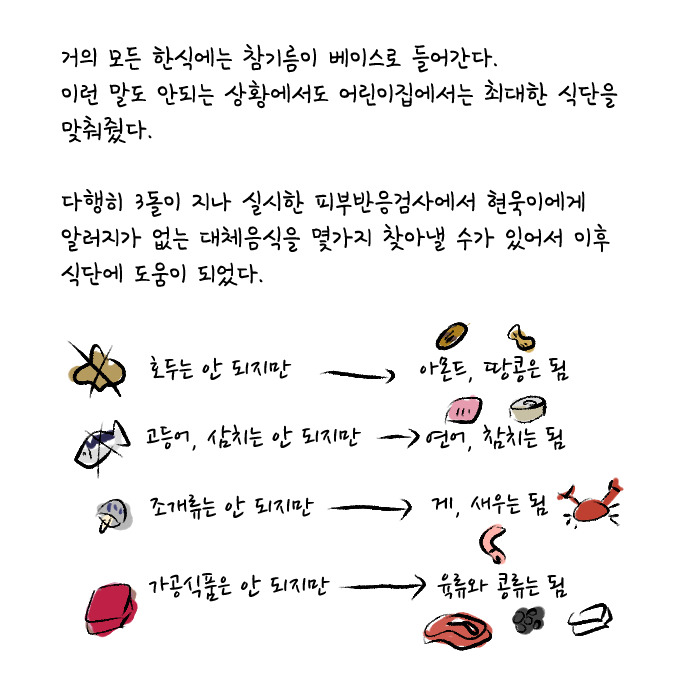 거의 모든 한식에는 참기름이 베이스로 들어간다.
이런 말도 안되는 상황에서도 어린이집에서는 최대한 식단을
맞춰줬다.
다행히 3돌이 지나 실시한 피부반응검사에서 현욱이에게
알러지가 없는 대체음식을 몇가지 찾아낼 수가 있어서 이후
식단에 도움이 되었다.
호두는 안 되지만 → 아몬드, 땅콩은 됨
고등어, 삼치는 안 되지만 → 연어, 참치는 됨
조개류는 안 되지만 → 게, 새우는 됨
가공식품은 안 되지만 → 육류와 콩류는 됨